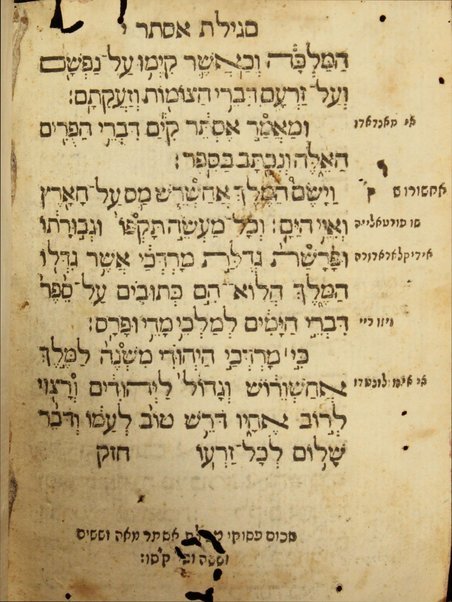 מגילת אסתר י
הַמַּלְכָּה וְכַאֲשֶׁר קִיְּמוּ עַל־נַפְשָׁם
וְעַל־זַרְעָם דִּבְרֵי הַצּוֹמוֹת וְזַעֲקָתָם:
וּמַאֲמַר אֶסְתֵּר קִיַּם דִּבְרֵי הַפֻּרִים
הָאֵלֶּה וְנִכְתָּב בַּסֵּפֶר:
וַיָּשֶׂם הַמֶּלֶךְ אֲחַשְׁרֹשׁ מַס עַל־הָאָרֶץ
וְאִיֵּי הַיָּם: וְכָל־מַעֲשֵׂה תָקְפּוֹ וּגְבוּרָתוֹ
וּפָרָשַׁת גְּדֻלַּת מָרְדֳּכַי אֲשֶׁר גִּדְּלוֹ
הַמֶּלֶךְ הֲלוֹא־הֵם כְּתוּבִים עַל־סֵפֶר
דִּבְרֵי הַיָּמִים לְמַלְכֵי מָדַי וּפָרָס:
כִּי מָרְדֳּכַי הַיְּהוּדִי מִשְׁנֶה לַמֶּלֶךְ
אֲחַשְׁוֵרוֹשׁ וְגָדוֹל לַיְּהוּדִים וְרָצוּי
לְרוֹב אֶחָיו דֹּרֵשׁ טוֹב לְעַמּוֹ וְדֹבֵר
שָׁלוֹם לְכָל־זַרְעוֹ חזק
אי מאנדארו
אחשורוש
שו פורטאליזה
סכום פסוקי מגלת אסתר מאה וששים
וששה